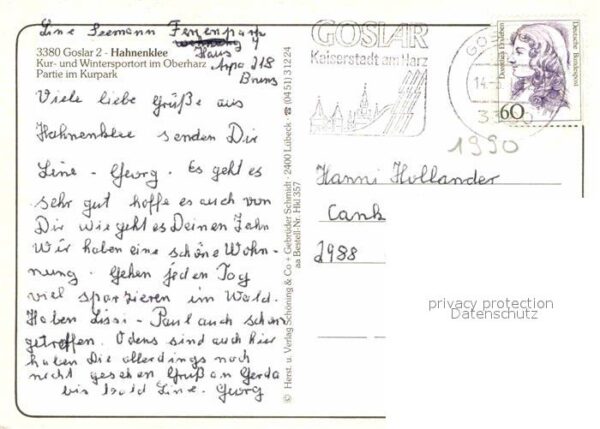 Line Seemann Ferienpark
Haus 4
3380 Goslar 2 - Hahnenklee
Kur- und Wintersportort im Oberharz
Partie im Kurpark
Apo 218
Bruns
Viele liebe Grüße aus
Hahnenklee senden Dir
Line - Georg. Es geht es
sehr gut hoffe es auch von
Dir wie geht es Deinen Zahn
Wir haben eine schöne Wohn-
nung. Gehen jeden Tag
viel sparzieren im Wald.
Haben Lissi - Paul auch schon
getroffen. Odens sind auch hier
haben Die allerdings noch
nicht gesehen Gruß an Gerda
bis bald Line. Georg
© Herst. u. Verlag Schöning & Co + Gebrüder Schmidt · 2400 Lübeck · ☎ (0451) 3 12 24
aa Bestell-Nr. Hkl 357
GOSLAR
Kaiserstadt am Harz
GO
14.
Dorothea Erxleben
Deutsche Bundespost
60
1990
Hanni Hollander
2988
privacy protection
Datenschutz